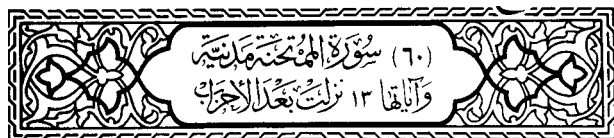 (٦٠) سُورَةُ الْمُمْتَحَنَةِ مَدَنِيَّةٌ
وَآيَاتُهَا ١٣ نَزَلَتْ بَعْدَ الْأَحْزَابِ